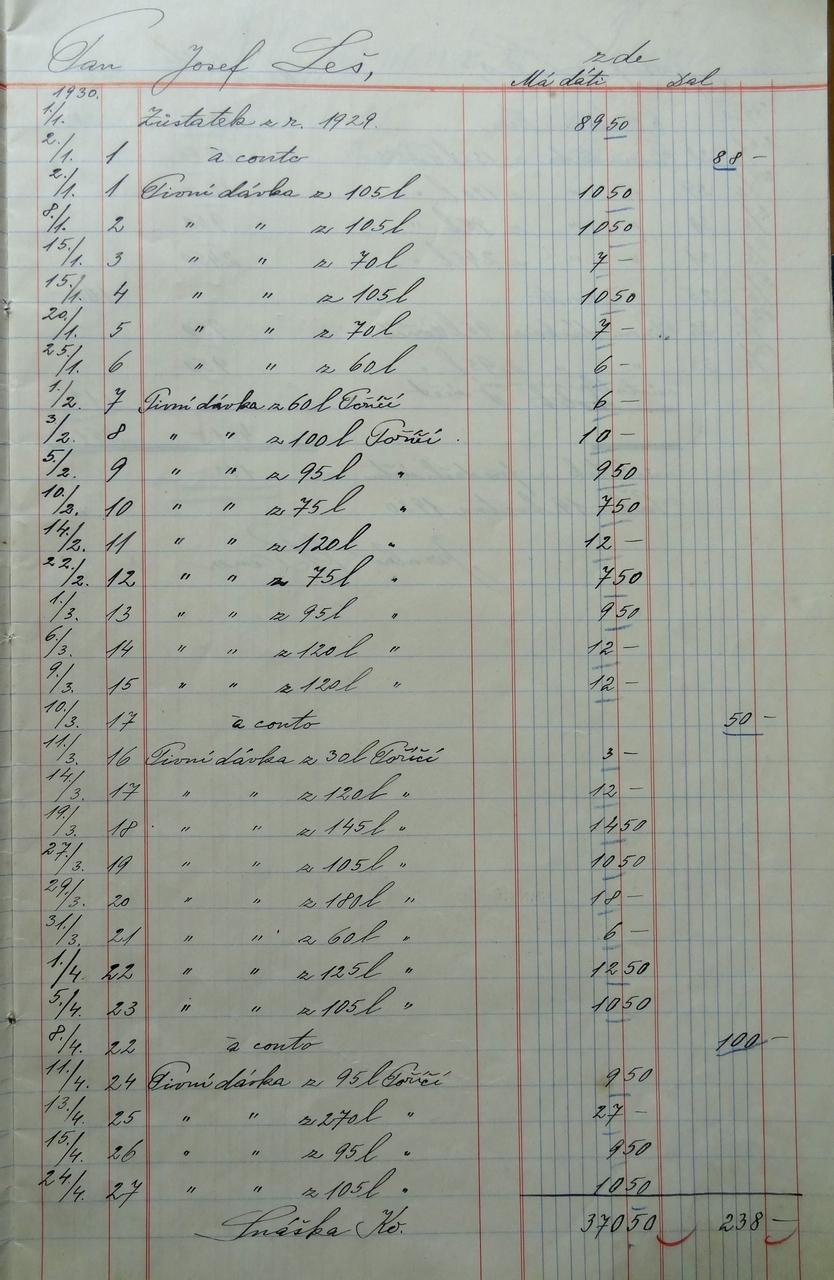 Pan Josef Leš, zde
Má dáti Dal
1930.
1./1. Zůstatek z r. 1929. 89 50
2./1. 1 à conto 88 —
2./1. 1 Pivní dávka z 105 l 10 50
8./1. 2 " " z 105 l 10 50
15./1. 3 " " z 70 l 7 —
15./1. 4 " " z 105 l 10 50
20./1. 5 " " z 70 l 7 —
25./1. 6 " " z 60 l 6 —
1./2. 7 Pivní dávka z 60 l Poříčí 6 —
3/2. 8 " " z 100 l Poříčí 10 —
5/2. 9 " " z 95 l " 9 50
10./2. 10 " " z 75 l " 7 50
14./2. 11 " " z 120 l " 12 —
22./2. 12 " " z 75 l " 7 50
1./3. 13 " " z 95 l " 9 50
6./3. 14 " " z 120 l " 12 —
9./3. 15 " " z 120 l " 12 —
10./3. 17 à conto 50 —
11./3. 16 Pivní dávka z 30 l Poříčí 3 —
14./3. 17 " " z 120 l " 12 —
19./3. 18 " " z 145 l " 14 50
27./3. 19 " " z 105 l " 10 50
29./3. 20 " " z 180 l " 18 —
31./3. 21 " " z 60 l " 6 —
1./4. 22 " " z 125 l " 12 50
5./4. 23 " " z 105 l " 10 50
8./4. 22 à conto 100 —
11./4. 24 Pivní dávka z 95 l Poříčí 9 50
13./4. 25 " " z 270 l " 27 —
15./4. 26 " " z 95 l " 9 50
24./4. 27 " " z 105 l " 10 50
Snáška Kč. 370 50 238 —